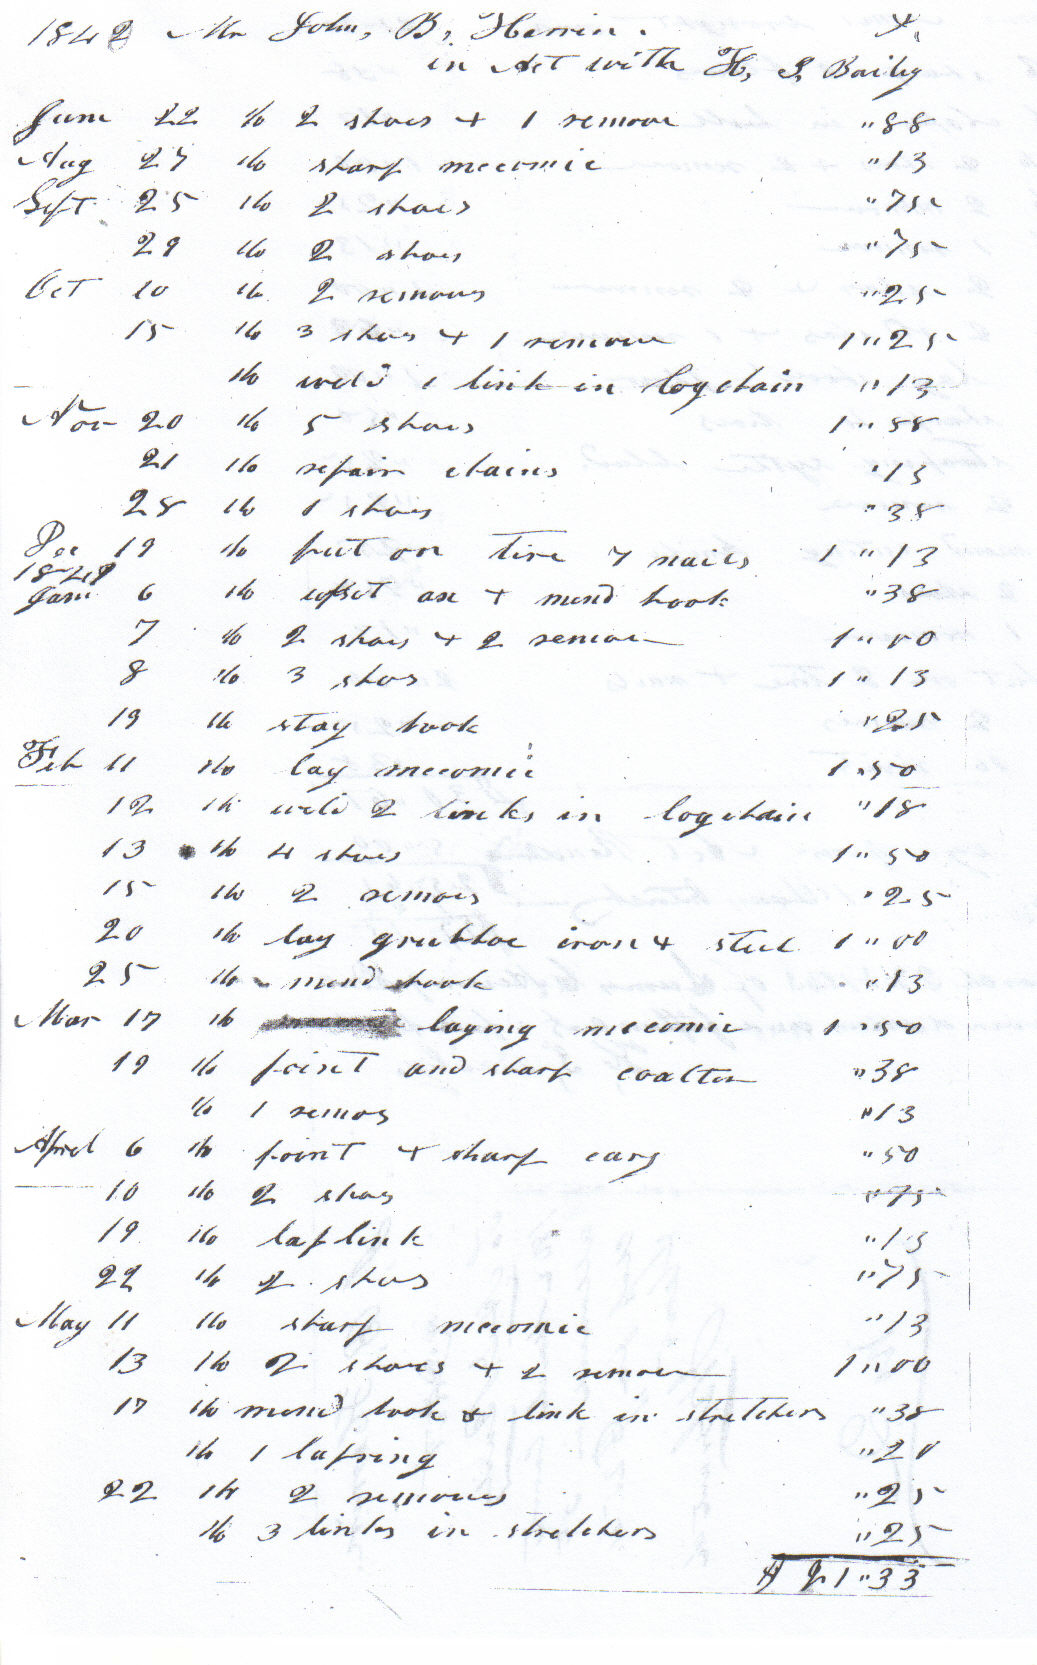 1842 Mr John, B, Herrin.
in Act with H, S, Baily
June 22 to 2 shoes + 1 remove "88
Aug 27 to sharp mecomic "13
Sept 25 to 2 shoes "75
29 to 2 shoes "75
Oct 10 to 2 removes "25
15 to 3 shoes + 1 remove 1"25
to weld 1 link in logchain "13
Nov 20 to 5 shoes 1"88
21 to repair chains "13
28 to 1 shoes "38
Dec 19 to put on tire 7 nails 1"13
1849
Janu 6 to upset ax + mend hook "38
7 to 2 shoes + 2 remove 1"00
8 to 3 shos 1"13
19 to stay hook "25
Feb 11 to lay mecomic 1"50
12 to weld 2 links in logchain "18
13 to 4 shoes 1"50
15 to 2 remoes "25
20 to lay grubhoe iron + steel 1"00
25 to mend hook "13
Mar 17 to laying mecomic 1"50
19 to point and sharp coalter "38
to 1 remos "13
April 6 to point + sharp cary "50
10 to 2 shoes "75
19 to laplink "13
22 to 2 shoes "75
May 11 to sharp mecomic "13
13 to 2 shoes + 2 remove 1"00
17 to mend hook & link in stretchers "38
to 1 lapring "20
22 to 2 removes "25
to 3 links in stretchers "25
$ 21"33